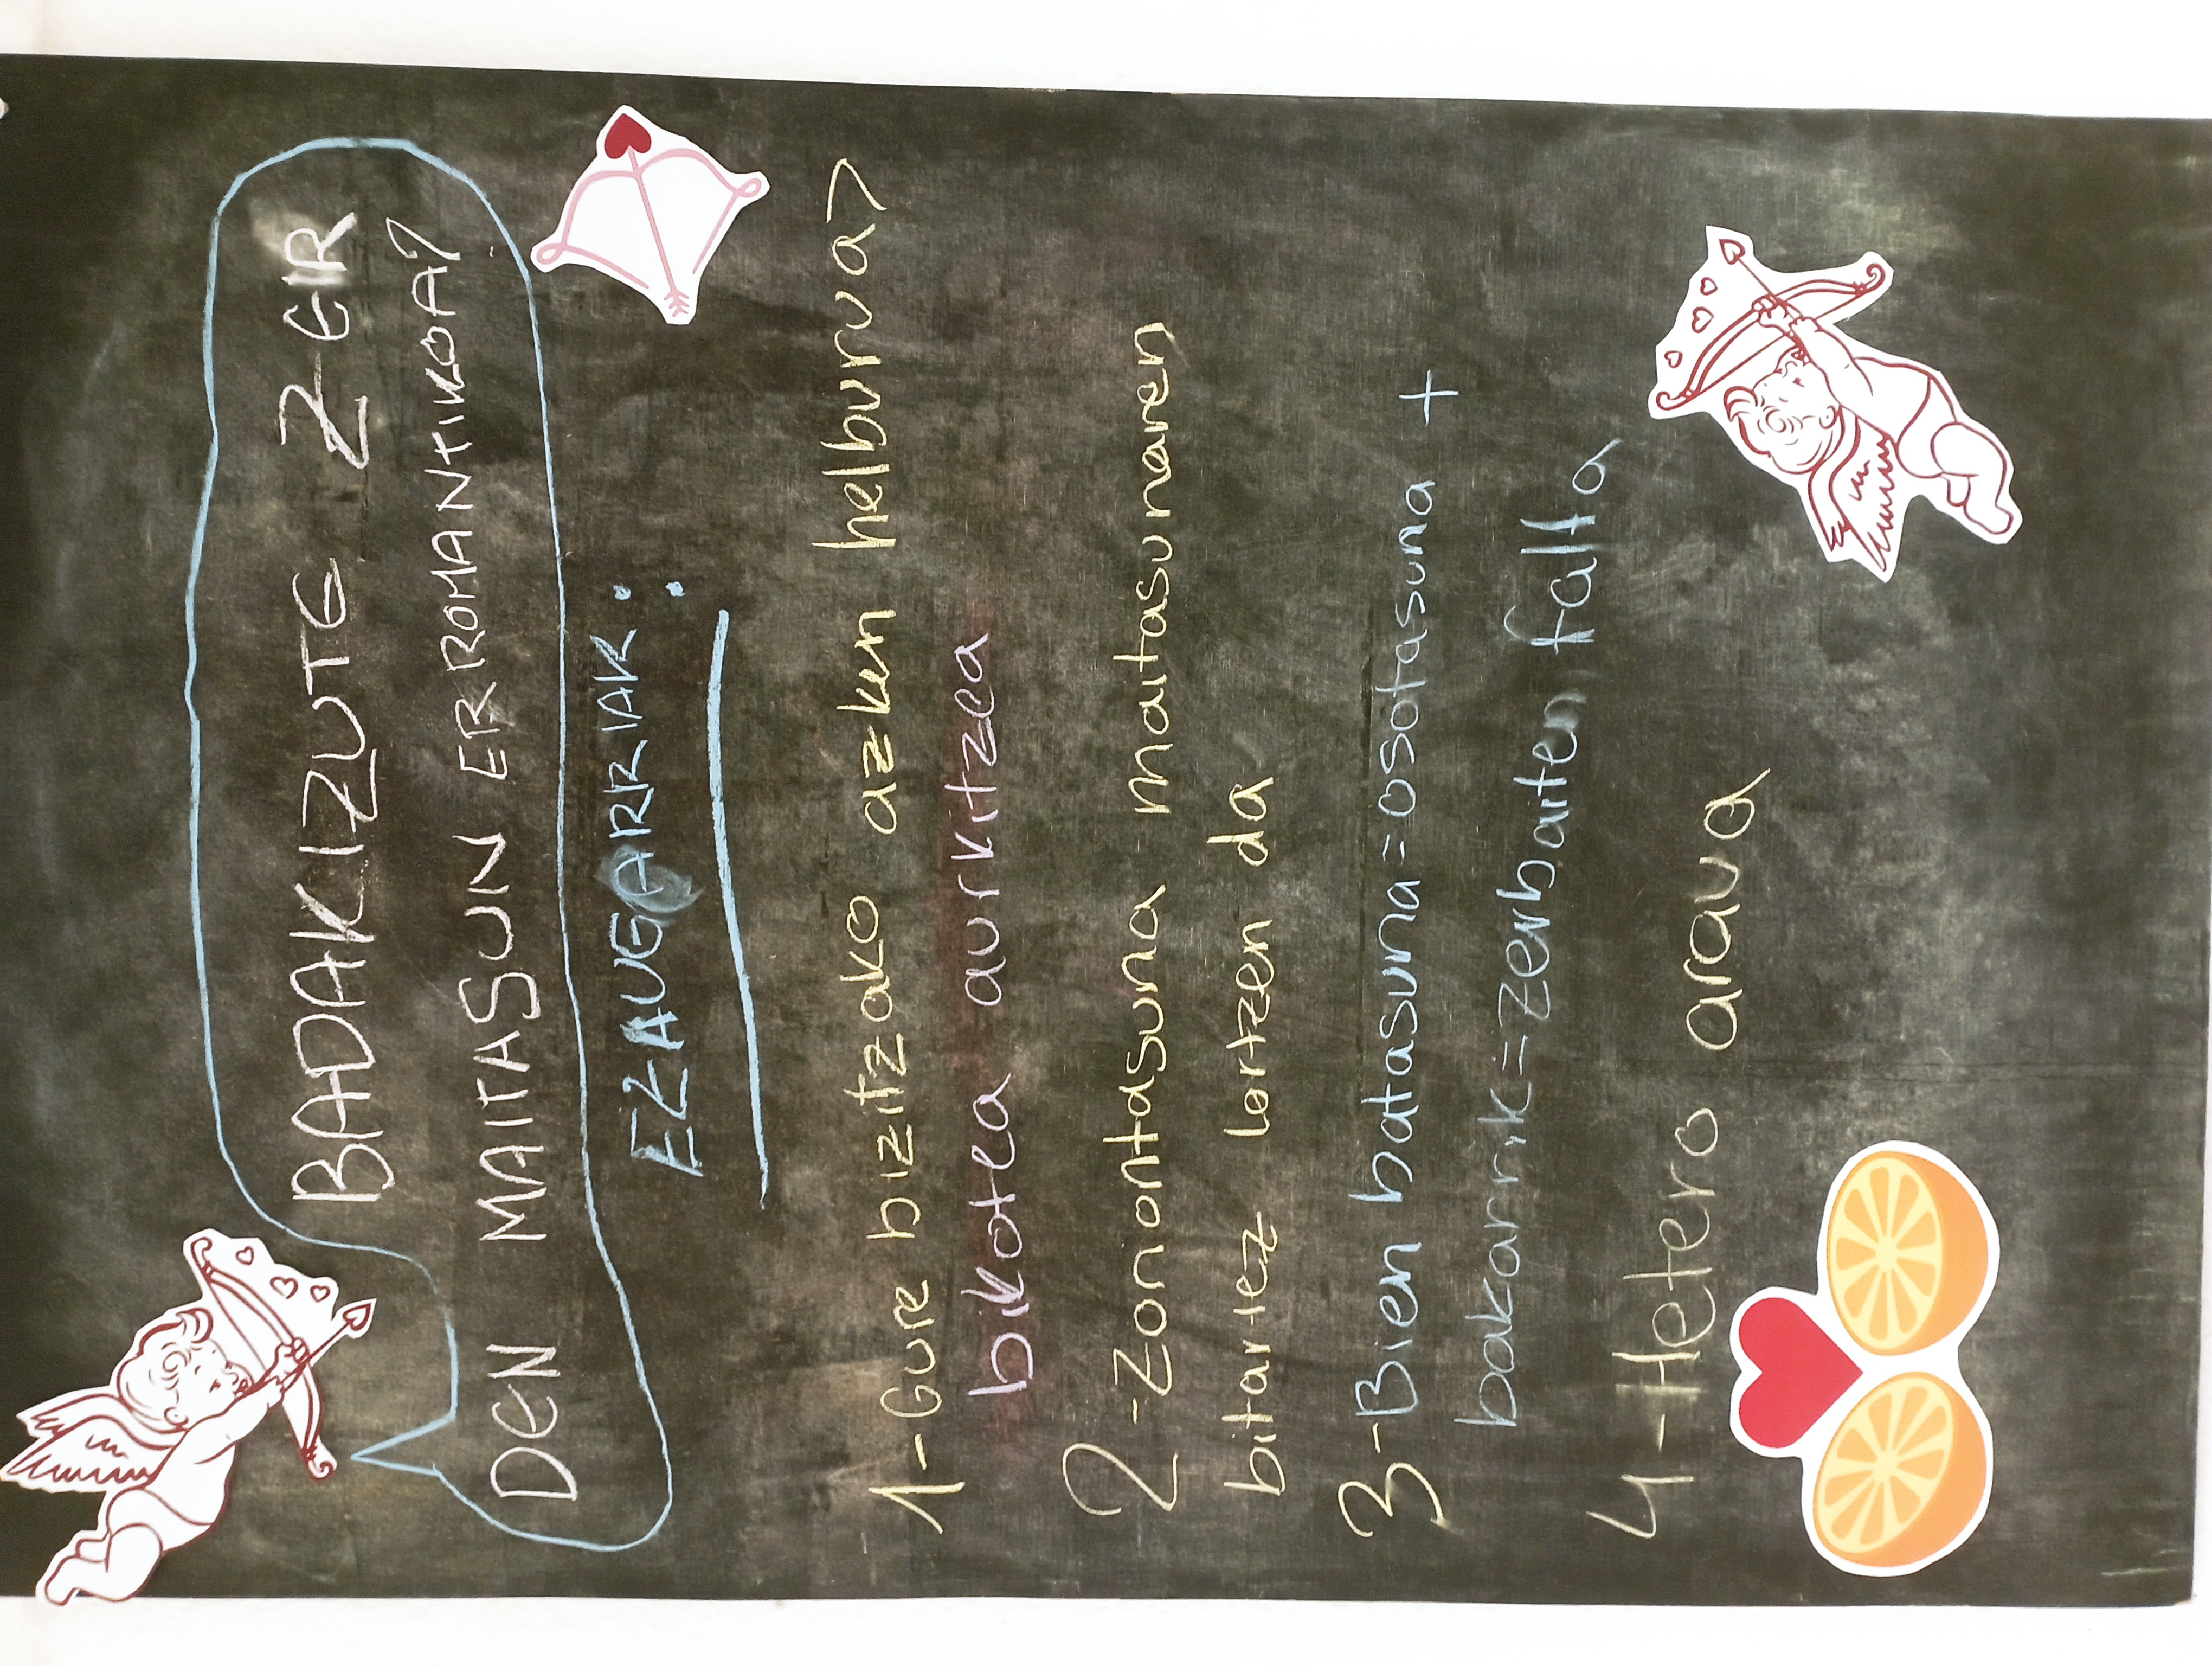 BADAKIZUTE ZER
DEN MAITASUN ERROMANTIKOA?
EZAUGARRIAK:
1-Gure bizitzako azken helburua>
bikotea aurkitzea
2-Zoriontasuna maitasunaren
bitartez lortzen da
3-Bien batasuna=osotasuna +
bakarrik=zerbaiten falta
4-Hetero araua